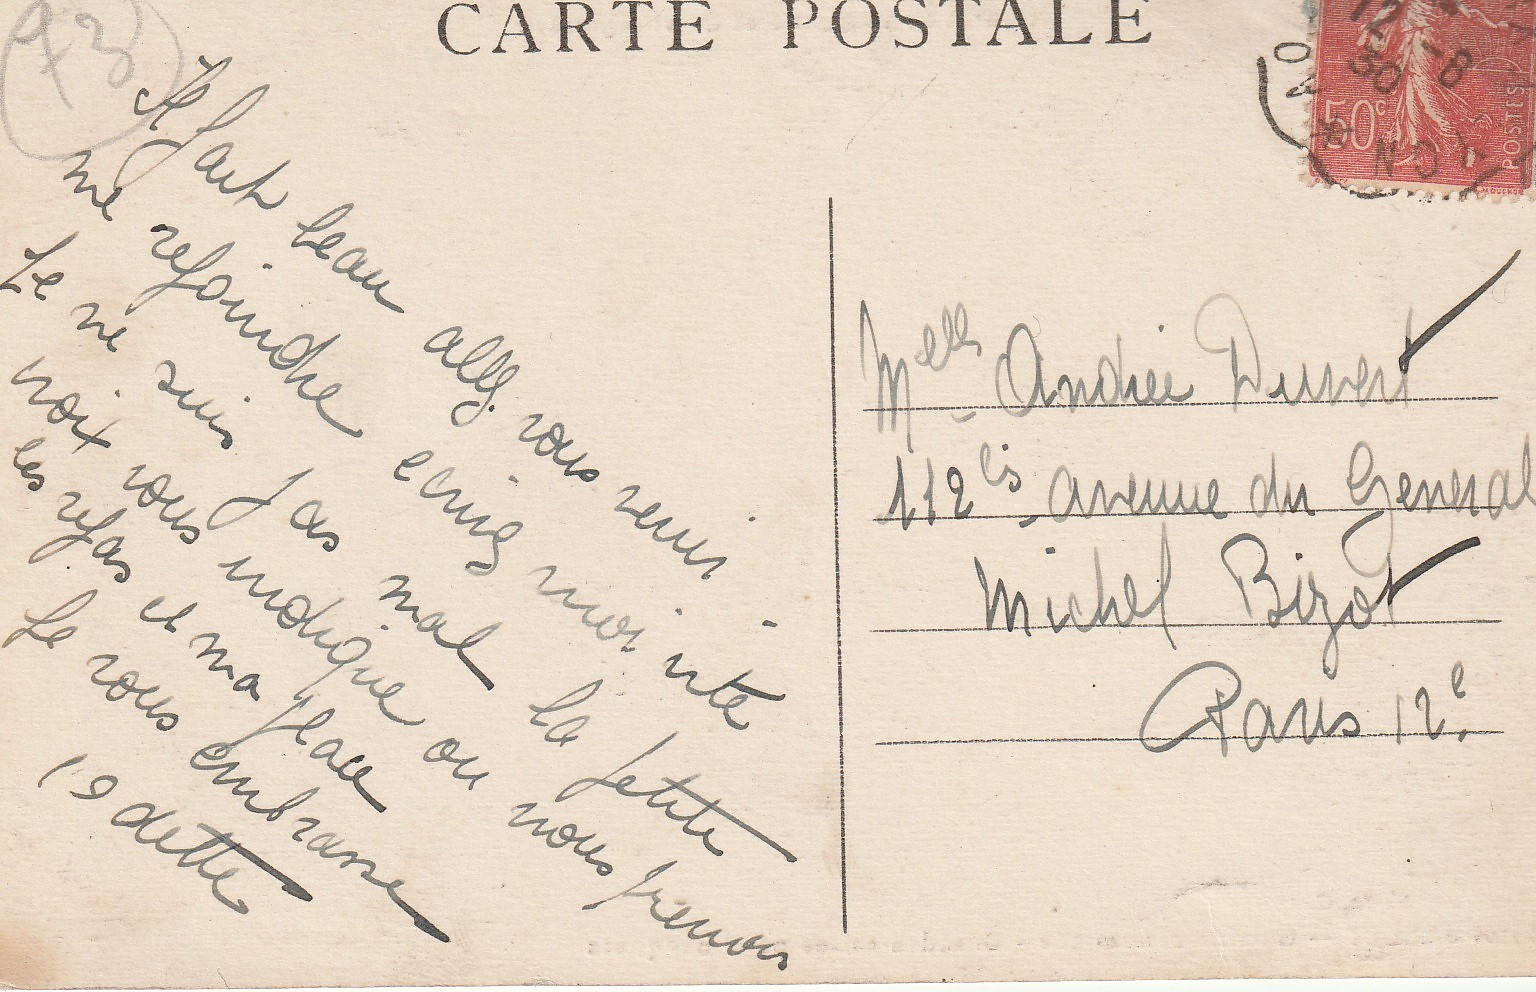 CARTE POSTALE
73
12 -8
30
50c
POSTES
Il fait beau allez vous venir
me rejoindre ecrivez moi vite
Je ne suis pas mal la petite
croix vous indique ou nous prenons
les repas et ma place
Je vous embrasse
Odette
Melle Andrée Duvert
112bis avenue du General
Michel Bizot
Paris 12e.